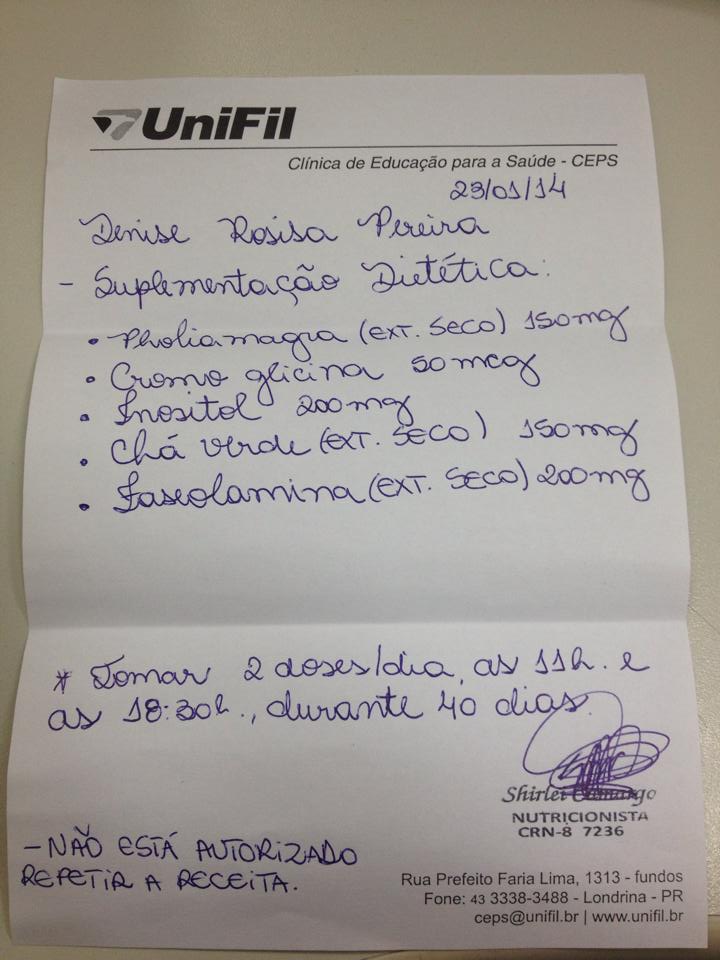 UniFil
Clínica de Educação para a Saúde - CEPS
23/01/14
Denise Rosisa Pereira
- Suplementação Dietética:
• Pholiamagra (EXT. SECO) 150mg
• Cromo glicina 50mcg
• Inositol 200mg
• Chá verde (EXT. SECO) 150mg
• Faseolamina (EXT. SECO) 200mg
* Tomar 2 doses/dia, as 11h. e
as 18:30h., durante 40 dias.
Shirlei Camargo
NUTRICIONISTA
CRN-8 7236
- NÃO ESTÁ AUTORIZADO
REPETIR A RECEITA.
Rua Prefeito Faria Lima, 1313 - fundos
Fone: 43 3338-3488 - Londrina - PR
ceps@unifil.br | www.unifil.br